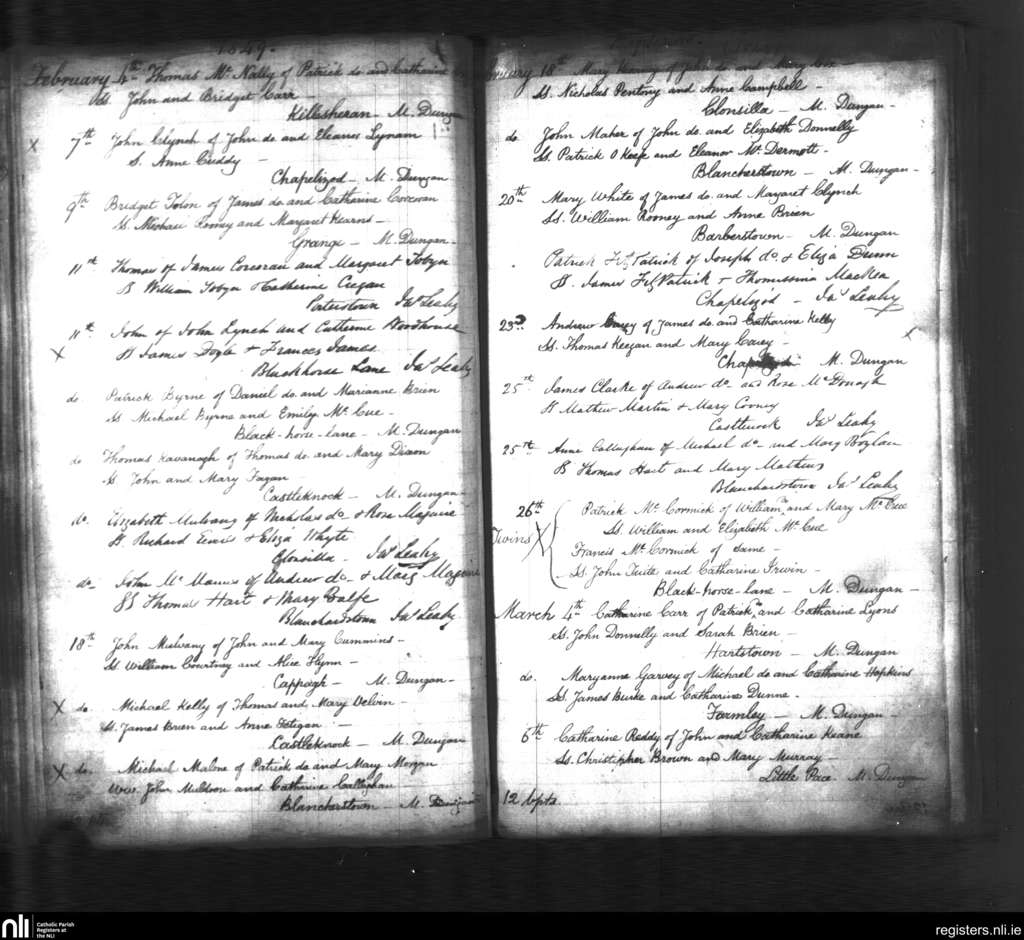 1849.
February 4th Thomas Mc Nally of Patrick do and Catharine
Ss. John and Bridget Carr
Killesheran - M. Dungan
7th John Clynch of John do and Eleanor Lynam
S. Anne Cuddy -
Chapelizod - M. Dungan
9th Bridget Tolon of James do. and Catharine Corcoran
Ss. Michael Rooney and Margaret Kearns -
Grange - M. Dungan -
11th Thomas of James Corcoran and Margaret Tobyn
Ss William Tobyn & Catherine Cregan
Porterstown Jas Leahy
X 11th John of John Lynch and Catherine Woodhouse
Ss James Doyle & Frances James
Blackhorse Lane Jas Leahy
do Patrick Byrne of Daniel do. and Marianne Brien
Ss Michael Byrne and Emily Mc Cue -
Black-horse-lane - M. Dungan
do Thomas Kavanagh of Thomas do. and Mary Dixon
Ss John and Mary Fagan
Castleknock - M. Dungan -
do. Elizabeth Mulvany of Nicholas do & Rose Maguire
Ss. Richard & Eliza Whyte
Clonsilla Jas Leahy
do John Mc Manus of Andrew do. & Mary
SS Thomas Hart & Mary
Blanchardstown Jas Leahy
18th John Mulvany of John and Mary Cummins -
Ss William Courtney and Alice Flynn -
Cappagh - M. Dungan -
X do. Michael Kelly of Thomas and Mary
Ss. James Brien and Anne
Castleknock - M. Dungan
X do. Michael Malone of Patrick do and Mary Morgan
John Muldoon and Catharine Callaghan
Blancherstown - M. Dungan
18th Mary of John do and Mary
Ss. Nicholas Pentony and Anne Campbell -
Clonsilla - M. Dungan -
do. John Maher of John do. and Elizabeth Donnelly
Ss Patrick O Keefe and Eleanor Mc Dermott -
Blancherstown - M. Dungan -
20th Mary White of James do. and Margaret Clynch
Ss. William Rooney and Anne Brien
Barberstown - M. Dungan
Patrick Fitz Patrick of Joseph do. & Eliza Dunn
Ss. James Fitz Patrick & Thomissinia MacKea
Chapelizod - Jas Leahy
23rd Andrew Carey of James do. and Catharine Kelly
Ss. Thomas Keegan and Mary Carey -
Chapelizod M. Dungan
25th James Clarke of Andrew do. and Rose Mc Donagh
Ss Mathew Martin & Mary Cooney
Castlenock Jas Leahy
25th Anne Callaghan of Michael do - and Mary Boylan
Ss Thomas Hart and Mary Mathews
Blanchardstown Jas Leahy
26th Patrick Mc Cormick of William and Mary Mc Cue
Twins X Ss. William and Elizabeth Mc Cue
Francis Mc Cormick of same -
Ss. John Tuite and Catharine Irwin -
Black-horse-lane - M. Dungan -
March 4th Catharine Carr of Patrick and Catharine Lyons
Ss. John Donnelly and Sarah Brien -
Hartstown - M. Dungan
do. Maryanne Garvey of Michael do and Catharine Hopkins
Ss. James Burke and Catharine Dunne.
Farmley - M. Dungan -
5th Catharine Reddy of John and Catharine Keane
Ss. Christopher Brown and Mary Murray -
Little Pace M. Dungan
12 bpts.
nli Catholic Parish
Registers at
the NLI
registers.nli.ie